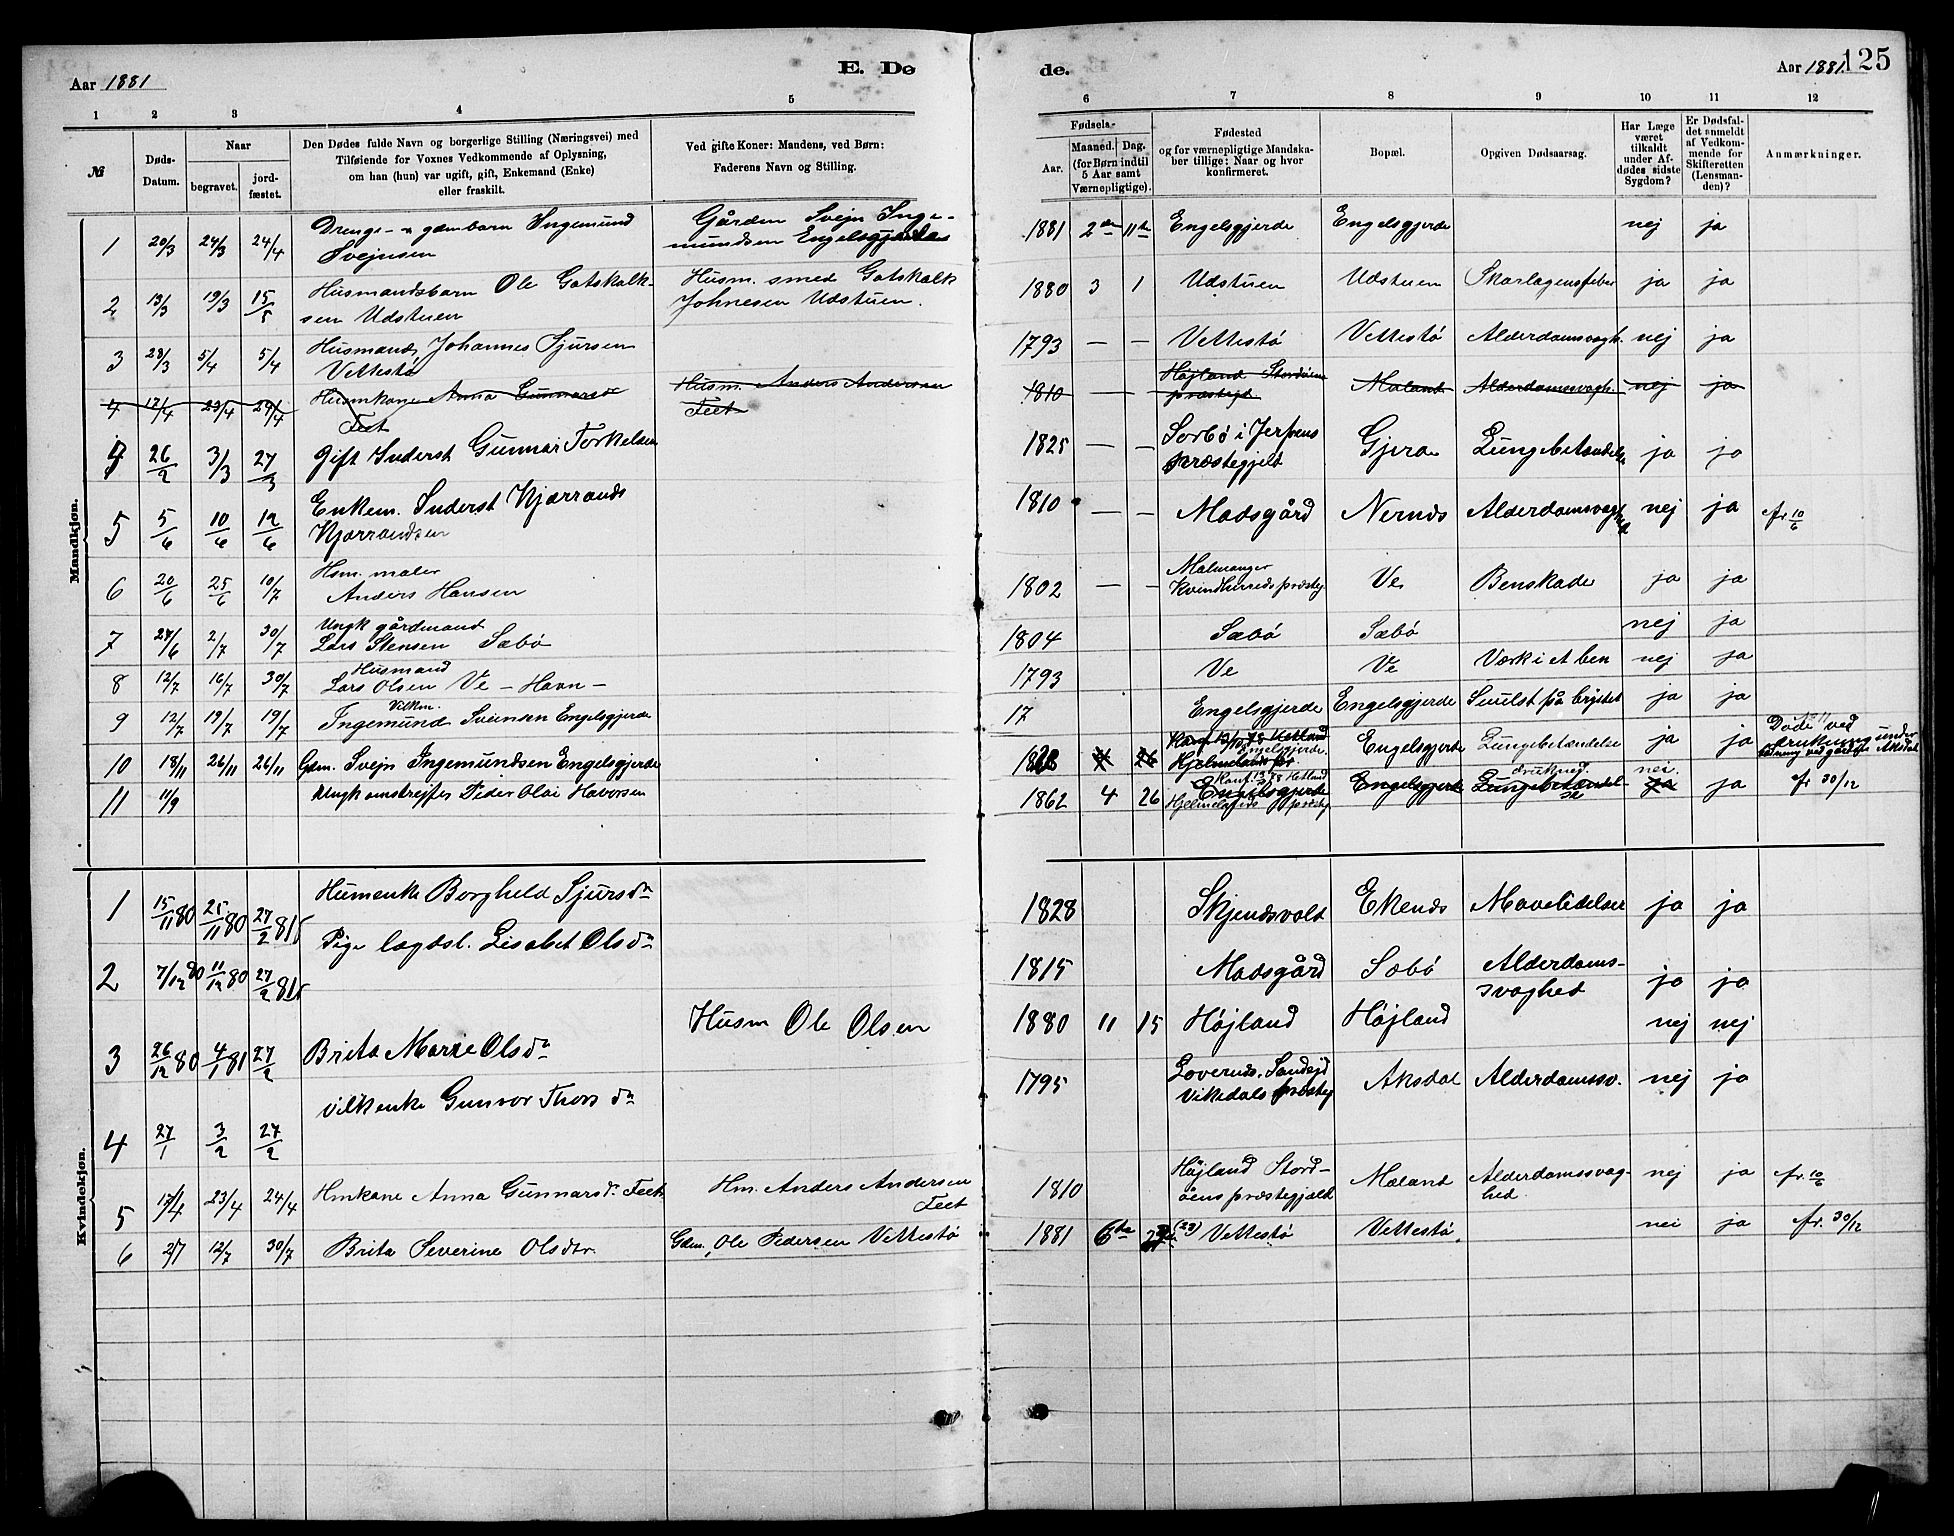 Aar 1881
E. Dø
de.
Aar 1881.
125
1 2 3 4 5 6 7 8 9 10 11 12
№
Døds-Datum.
Naar
begravet.
jordfæstet.
Den Dødes fulde Navn og borgerlige Stilling (Næringsvei) med
Tilføiende for Voxnes Vedkommende af Oplysning,
om han (hun) var ugift, gift, Enkemand (Enke)
eller fraskilt.
Ved gifte Koner: Mandens, ved Børn:
Faderens Navn og Stilling.
Fødsels-
Aar.
Maaned. Dag.
(for Børn indtil
5 Aar samt
Værnepligtige).
Fødested
og for værnepligtige Mandska-
ber tillige: Naar og hvor
konfirmeret.
Bopæl.
Opgiven Dødsaarsag.
Har Læge
været
tilkaldt
under Af-
dødes sidste
Sygdom?
Er Dødsfal-
det anmeldt
af Vedkom-
mende for
Skifteretten
(Lensman-
den)?
Anmærkninger.
Mandkjøn.
1 20/3 24/3 24/4 Drenge- gdmbarn Ingemund
Svejnsen
Gården Svejn Inge-
mundsen Engelsgjerde
1881 2den 11te Engelsgjerde Engelsgjerde nej ja
2 13/3 19/3 15/5 Husmandsbarn Ole Gotskalk-
sen Udstuen
Husm. smed Gotskalk
Johnesen Udstuen.
1880 3 1 Udstuen Udstuen Skarlagensfeber ja ja
3 28/3 5/4 5/4 Husmand, Johannes Sjursen
Vettestø
1793 — — Vettestø Vettestø Alderdomsvagh. nej ja
4 17/4 23/4 24/4 Husmkone Anna Gunnarsd
Feet
Husm. Anders Andersen
Feet
1810 — Højland Stordøens
præstegj Mæland Alderdomsvagh. nej ja
4 26/2 3/3 27/3 Gift Inderst Gunnar Torkelsen
1825 — — Sørbø i Jerfens
præstegjeld Gjera Lungebetændelse ja ja
5 5/6 10/6 12/6 Enkem. Inderst Kjærrands
Kjærrandsen
1810 — — Madsgård Nernds Alderdomsvagh nej ja fr. 10/6
6 20/6 25/6 10/7 Hsm. maler
Anders Hansen
1802 — — Malmanger
Kvindherreds præsteg. Ve Benskade ja ja
7 27/6 2/7 30/7 Ungk gårdmand
Lars Stensen Sæbø
1804 Sæbø Sæbø nej ja
8 12/7 16/7 30/7 Husmand
Lars Olsen Ve - Havn -
1793 Ve Ve Værk i et ben nej ja
9 12/7 19/7 19/7 Vilkm.
Ingemund Sveinsen Engelsgjerde
17 Engelsgjerde Engelsgjerde Svulst på brystet ja ja
10 18/11 26/11 26/11 Gdm. Svejn Ingemundsen Engelsgjerde
Engelsgjerde Engelsgjerde Lungebetændelse ja ja
11 11/9 Peder Olai Haversen
1862 4 26 Engelsgjerde
Hjelmelands præsteg Engelsgjerde Lungebetændel- nei. ja fr 30/12
Døde ved
drukning under
Kvindekjøn.
1 15/11 80 25/11 80 27/2 81 Humenke Borghild Sjursdn
1828 Skjendsvolt Ekends Mavelidelser ja ja
2 7/12 80 11/12 80 27/2 81 Pige lægdsl. Lisabet Olsdn
1815 Madsgård Sæbø Alderdoms-
svaghed ja ja
3 26/12 80 4/1 81 27/2 Brita Marie Olsdn
Husm Ole Olsen
1880 11 15 Højland Højland nej nej
4 27/1 3/2 27/2 Vilkenke Gunvor Thorsdn
1795 Vikedals præsteg Aksdal Alderdomssv. nej ja
5 17/4 23/4 24/4 Hmkone Anna Gunnarsd. Feet
Hm. Anders Andersen
Feet
1810 Højland Stord-
øens præstegjæld Mæland Alderdomssvag-
hed. nej ja fr. 10/6
6 2/7 12/7 30/7 Brita Severine Olsdtr.
Gdm. Ole Pedersen Vettestø
1881 6te (23) Vettestø Vettestø. nei ja fr. 30/12